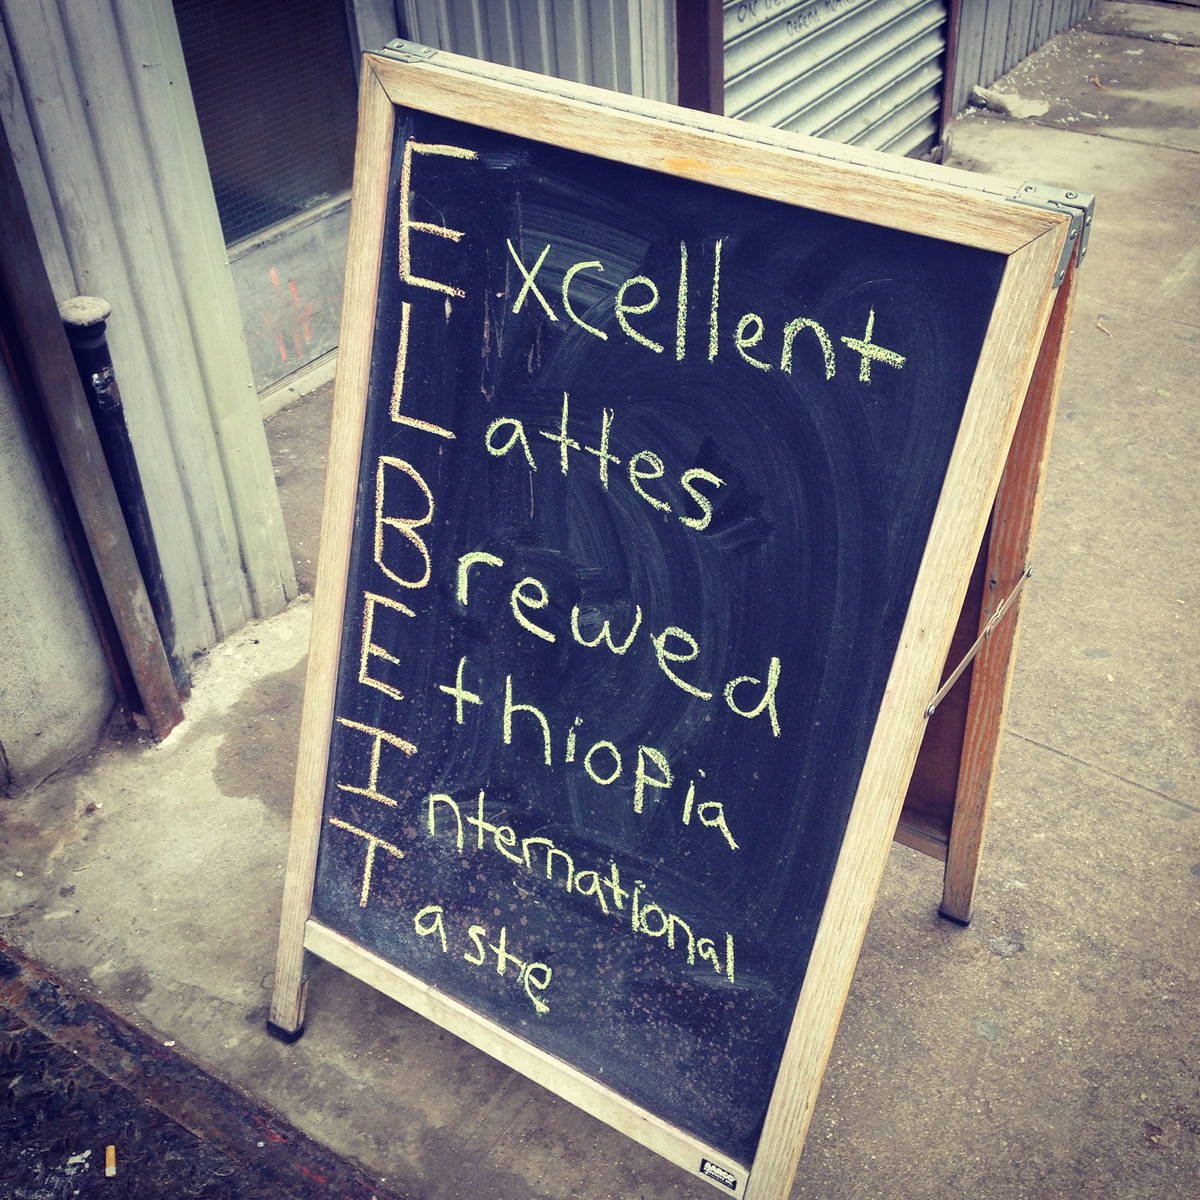 Excellent
Lattes
Brewed
Ethiopia
International
Taste